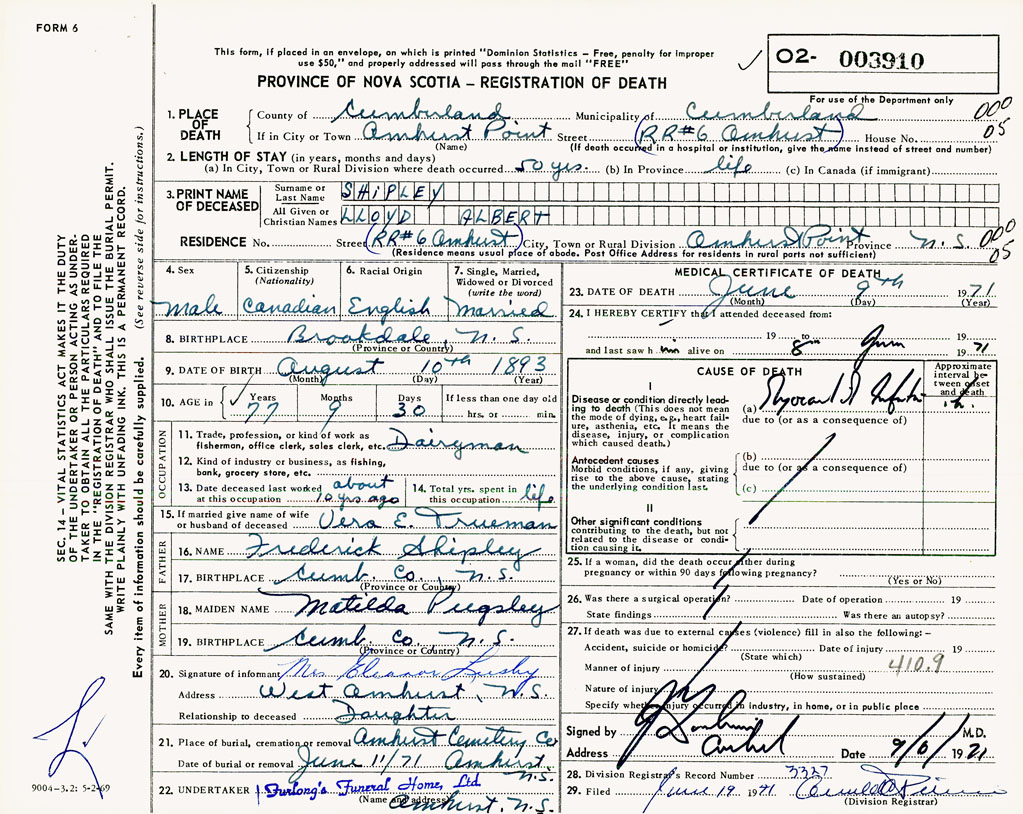 FORM 6
This form, if placed in an envelope, on which is printed "Dominion Statistics – Free, penalty for improper
use $50," and properly addressed will pass through the mail "FREE"
PROVINCE OF NOVA SCOTIA – REGISTRATION OF DEATH
O2- 003910
For use of the Department only
1. PLACE OF DEATH
County of Cumberland Municipality of Cumberland 000
If in City or Town Amherst Point Street (RR#6 Amherst) House No. 05
(Name) (If death occurred in a hospital or institution, give the name instead of street and number)
2. LENGTH OF STAY (in years, months and days)
(a) In City, Town or Rural Division where death occurred 50 yrs. (b) In Province life (c) In Canada (if immigrant)
3. PRINT NAME OF DECEASED
Surname or Last Name SHIPLEY
All Given or Christian Names LLOYD ALBERT
RESIDENCE No. Street (RR#6 Amherst) City, Town or Rural Division Amherst Point Province N.S. 000
(Residence means usual place of abode. Post Office Address for residents in rural parts not sufficient) 05
4. Sex
Male
5. Citizenship (Nationality)
Canadian
6. Racial Origin
English
7. Single, Married, Widowed or Divorced (write the word)
Married
8. BIRTHPLACE Brookdale, N.S.
(Province or Country)
9. DATE OF BIRTH August 10th 1893
(Month) (Day) (Year)
10. AGE in Years Months Days If less than one day old
77 9 30 hrs. or min.
OCCUPATION
11. Trade, profession, or kind of work as
fisherman, office clerk, sales clerk, etc. Dairyman
12. Kind of industry or business, as fishing,
bank, grocery store, etc.
13. Date deceased last worked at this occupation about 10 yrs ago
14. Total yrs. spent in this occupation life
15. If married give name of wife
or husband of deceased Vera E. Trueman
FATHER
16. NAME Frederick Shipley
17. BIRTHPLACE Cumb. Co., N.S.
(Province or Country)
MOTHER
18. MAIDEN NAME Matilda Pugsley
19. BIRTHPLACE Cumb. Co. N.S.
(Province or Country)
20. Signature of informant Mrs Eleanor Lusby
Address West Amherst, N.S.
Relationship to deceased Daughter
21. Place of burial, cremation or removal Amherst Cemetery Co
Date of burial or removal June 11/71 Amherst, N.S.
22. UNDERTAKER Furlong's Funeral Home, Ltd
(Name and address) Amherst, N.S.
MEDICAL CERTIFICATE OF DEATH
23. DATE OF DEATH June 9th 1971
(Month) (Day) (Year)
24. I HEREBY CERTIFY that I attended deceased from:
19 to 19
and last saw him alive on 8 June 1971
CAUSE OF DEATH
Approximate interval between onset and death
I
Disease or condition directly leading
to death (This does not mean
the mode of dying, e.g., heart failure,
asthenia, etc. It means the
disease, injury, or complication
which caused death.)
(a)
due to (or as a consequence of)
Antecedent causes
Morbid conditions, if any, giving
rise to the above cause, stating
the underlying condition last.
(b)
due to (or as a consequence of)
(c)
II
Other significant conditions
contributing to the death, but not
related to the disease or condition
causing it.
25. If a woman, did the death occur either during
pregnancy or within 90 days following pregnancy?
(Yes or No)
26. Was there a surgical operation? Date of operation 19
State findings Was there an autopsy?
27. If death was due to external causes (violence) fill in also the following: –
Accident, suicide or homicide? Date of injury 19
(State which)
Manner of injury 410.9
(How sustained)
Nature of injury
Specify whether injury occurred in industry, in home, or in public place
Signed by M.D.
Address Date 9/6/1971
28. Division Registrar's Record Number 3327
29. Filed June 19 1971
(Division Registrar)
SEC. 14 – VITAL STATISTICS ACT MAKES IT THE DUTY
OF THE UNDERTAKER OR PERSON ACTING AS UNDERTAKER
TO OBTAIN ALL THE PARTICULARS REQUIRED
IN THE "REGISTRATION OF DEATH" AND TO FILE THE
SAME WITH THE DIVISION REGISTRAR WHO SHALL ISSUE THE BURIAL PERMIT.
WRITE PLAINLY WITH UNFADING INK. THIS IS A PERMANENT RECORD.
Every item of information should be carefully supplied. (See reverse side for instructions.)
9004-3.2: 5-2-69